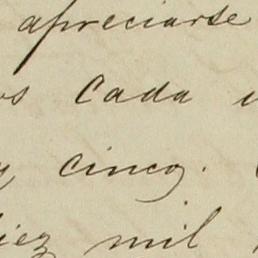 apreciarse
os cada u
y cinco.
diez mil